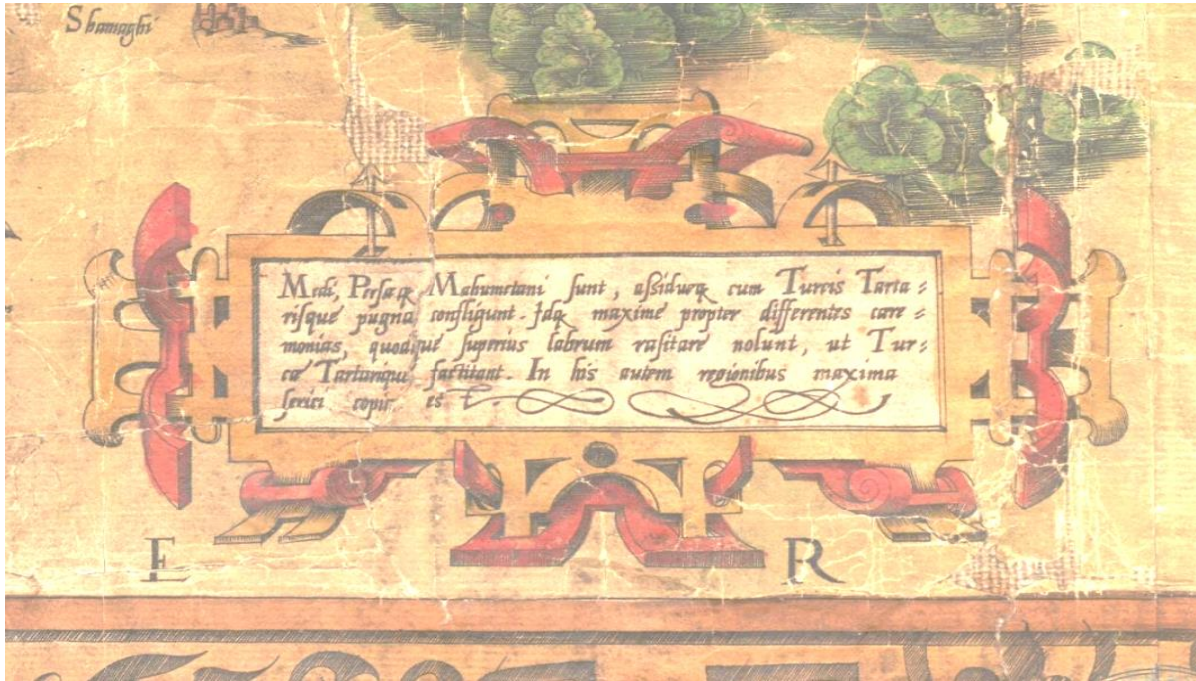 Shamaghi
Medi, Persæq; Mahumetani sunt, assidueq; cum Turcis Tarta=
risque pugna confligunt. Idq; maxime propter differentes care=
monias, quodque superius labrum rasitare nolunt, ut Tur=
cæ Tartarique factitant. In his autem regionibus maxima
serici copia est.
E R